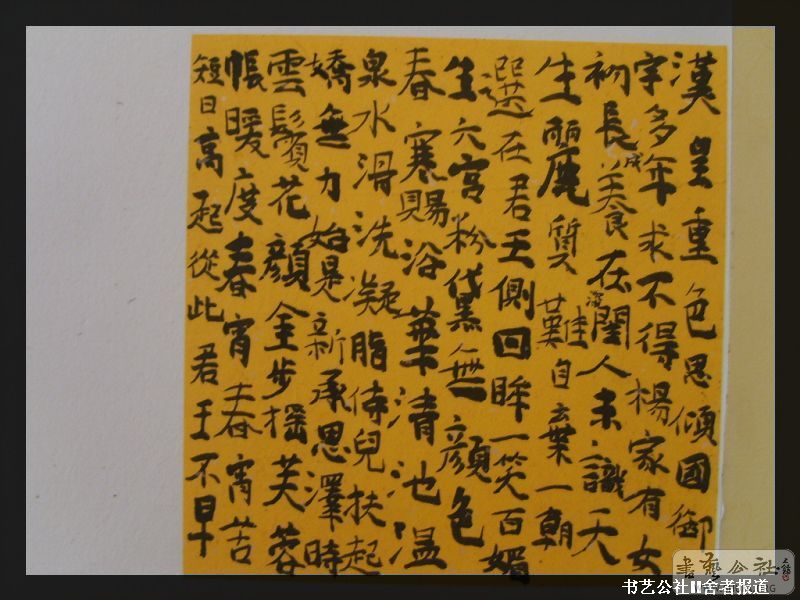 漢皇重色思傾國御
宇多年求不得楊家有女
初長成養在深閨人未識天
生麗質難自棄一朝
選在君王側回眸一笑百媚
生六宮粉黛無顏色
春寒賜浴華清池溫
泉水滑洗凝脂侍兒扶起
嬌無力始是新承恩澤時
雲鬢花顏金步搖芙蓉
帳暖度春宵春宵苦
短日高起從此君王不早
書藝公社
书艺公社II舍者报道